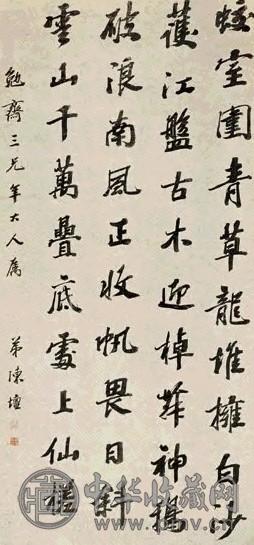 蛟室圍青草龍堆擁白沙
護江盤古木迎棹舞神鴉
破浪南風正收帆畏日斜
雲山千萬疊底處上仙槎
勉齋三兄年大人属
弟陳壇
中华收藏网